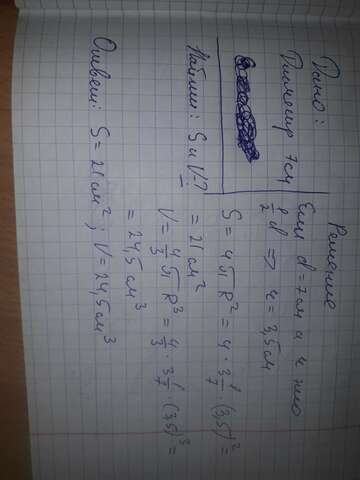 Дано:
Диаметр 7см
Найти: S и V?
Решение
Если d = 7см а r это
1/2 d => r = 3,5см
S = 4πR² = 4 · 3 1/7 · (3,5)² =
= 21см²
V = 4/3 πR³ = 4/3 · 3 1/7 · (3,5)³ =
= 24,5см³
Ответ: S = 21см²; V = 24,5см³